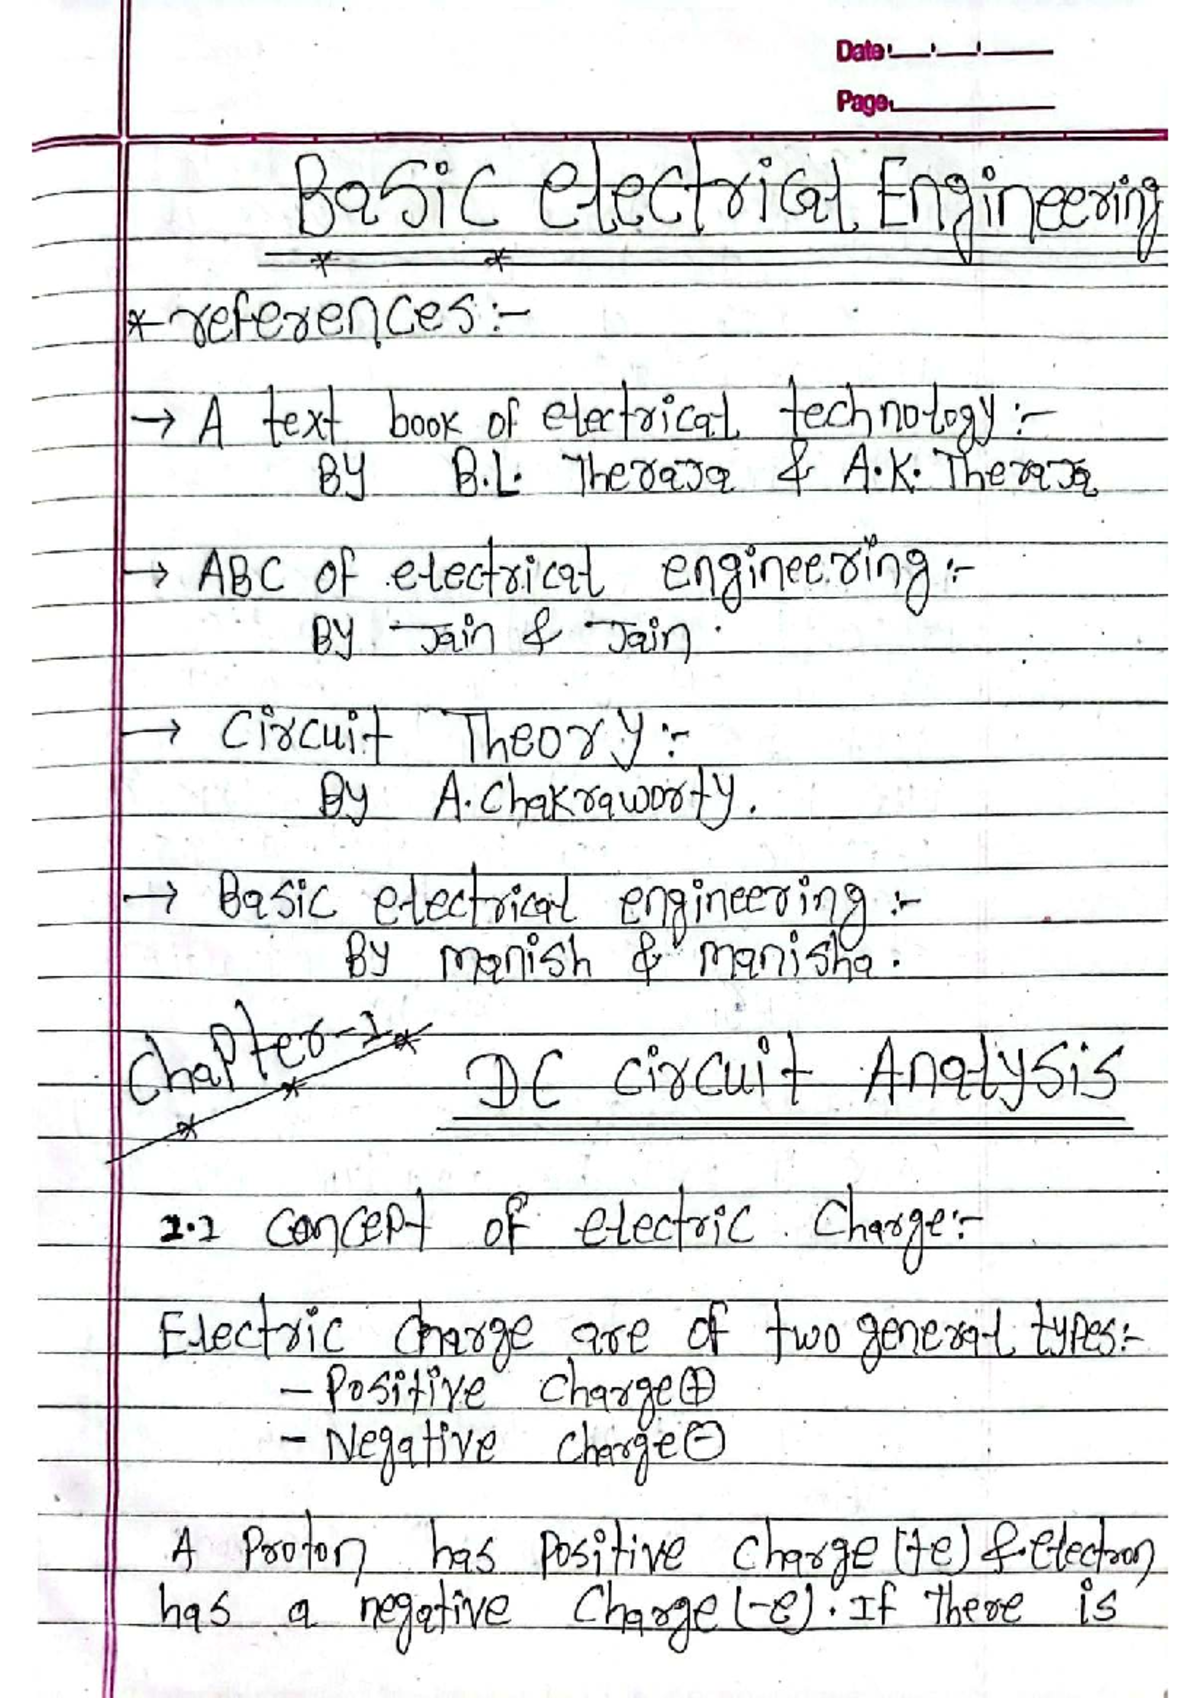 Date:
Page:
Basic electrical Engineering
* references:-
→ A text book of electrical technology:-
By B.L. Theraja & A.K. Theraja
→ ABC of electrical engineering:-
By Jain & Jain
→ Circuit Theory:-
By A. Chakraworty.
→ Basic electrical engineering:-
By manish & manisha.
Chapter-1 DC circuit Analysis
1.1 Concept of electric Charge:-
Electric Charge are of two general types:-
- Positive Charge ⊕
- Negative Charge ⊖
A Proton has Positive Charge (+e) & electron
has a negative Charge (-e). If There is